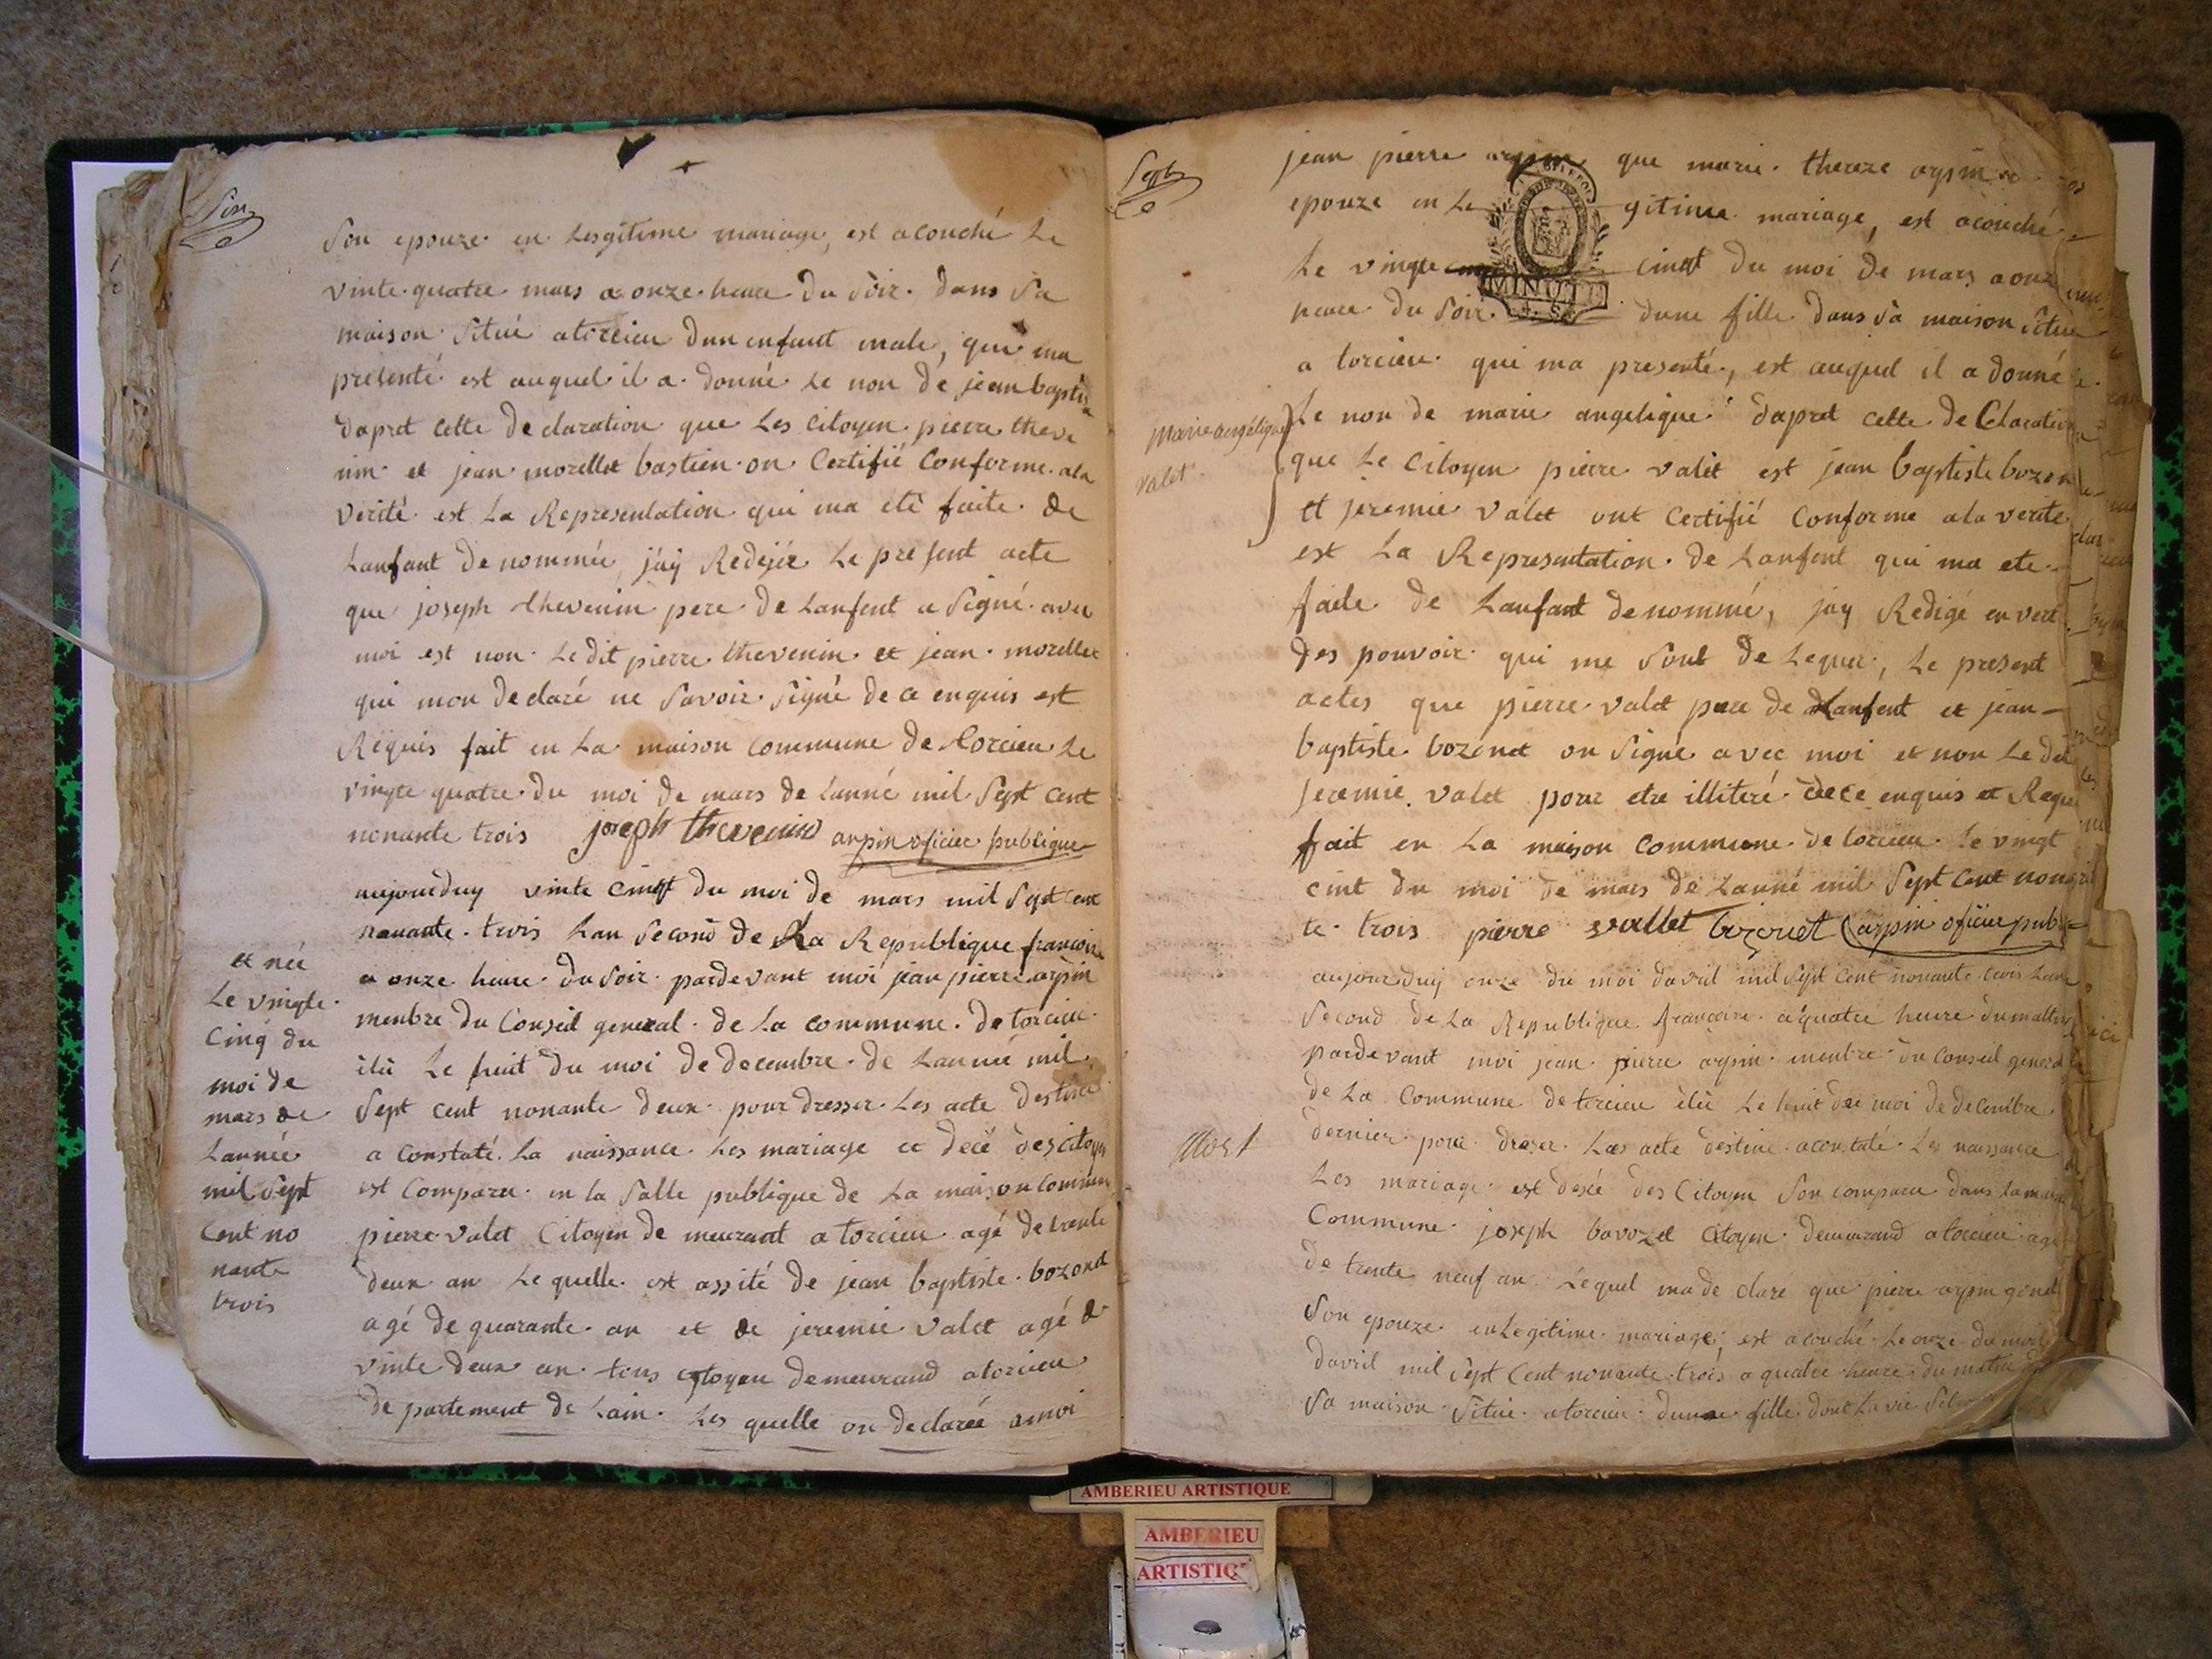 Six
Son epouze en Lesgitime mariage, est acouché Le
vinte quatre mars a onze heure du Soir dans Sa
maison Situé a torcieu dun enfant male, qui ma
présenté est auquel il a donné Le non de jean baptis
dapret cette declaration que Les Citoyen pierre theve
nin et jean morellet bastien on Certifié Conforme ala
verité est La Representation qui ma eté faite de
Lanfant denommée jáy Redejér Le present acte
que joseph thevenin pere de Lanfent a Signé avec
moi est non Ledit pierre thevenin et jean morellet
qui mon declaré ne Savoir Signé de ce enquis est
Requis fait en La maison commune de torcieu Le
vingte quatre du moi de mars de Lanné mil Sept cent
nonante trois joseph thevenin arpin oficier publique
aujourduy vinte cinqt du moi de mars mil Sept cent
nonante trois Lan Second de La Republique francoise
a onze heure du Soir pardevant moi jean pierre arpin
menbre du Conseil general de La commune de torcieu
élü Le huit du moi de decembre de Lanneé mil
Sept cent nonante deux pour dresser Les acte destiné
a constaté La naissance Les mariage et decé des citoyen
est Comparu en la Salle publique de La maison commune
pierre valet Citoyen demeurant a torcieu agé de trente
deux an Lequelle est assité de jean baptiste bozonet
agé de quarante an et de jeremie valet agé de
vinte deux an tous citoyen demeurand a torcieu
departement de Lain Les quelle on declarée a moi
et née
Le vingte
Cinq du
moi de
mars de
Lannée
mil Sept
Cent no
nante
trois
Sept
jean pierre arpin que marie thereze arpin
epouze en Le gitime mariage, est acouché
Le vingte cinqt du moi de mars a onze
MINUTE
heure du Soir dune fille dans Sa maison Situé
a torcieu qui ma presenté, est auquel il a donné
Le non de marie angelique dapret cette declaration
marie angelique
valet
que Le Citoyen pierre valet est jean baptiste bozon
et jeremie valet ont Certifié Conforme ala verité
est La Representation de Lanfent qui ma eté
faite de Lanfant denommé, jay Redigé en vert
des pouvoir qui me Sont deleguer, Le present
actes que pierre valet pere de Lanfent et jean
baptiste bozonet on Signé avec moi et non Ledit
jeremie valet pour etre illiteré de ce enquis et Requi
fait en La maison commune de torcieu Le vingt
cint du moi de mars de Lanné mil Sept cent nonan
te trois pierre vallet bozonet arpin oficier publi
aujourduy onze du moi davril mil Sept cent nonante trois Lan
Second de La Republique francoise a quatre heure du mattin
pardevant moi jean pierre arpin menbre du Conseil general
de La Commune de torcieu élü Le huit du moi de decembre
dernier pour dreser Les acte destiné a contaté Les naissance
Mort
Les mariage est desée des Citoyen Son comparu dans La maison
Commune joseph bavozet Citoyen demeurand a torcieu agé
de trente neuf an Lequel ma declaré que pierre arpin
Son epouze en Legitime mariage, est acouché Le onze du moi
davril mil Sept Cent nonante trois a quatre heure du matin
Sa maison Situé a torcieu dunne fille
AMBERIEU ARTISTIQUE
AMBERIEU
ARTISTIQ